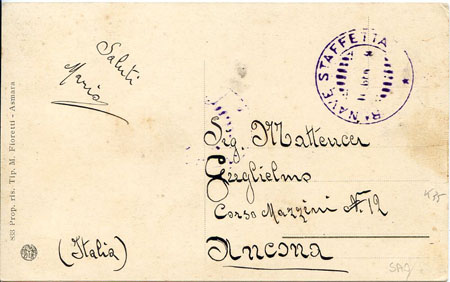 Saluti
Mario
R. NAVE STAFFETTA
Sig. Matteucci
Guglielmo
Corso Mazzini N. 12
Ancona
(Italia)
833 Prop. ris. Tip. M. Fioretti - Asmara